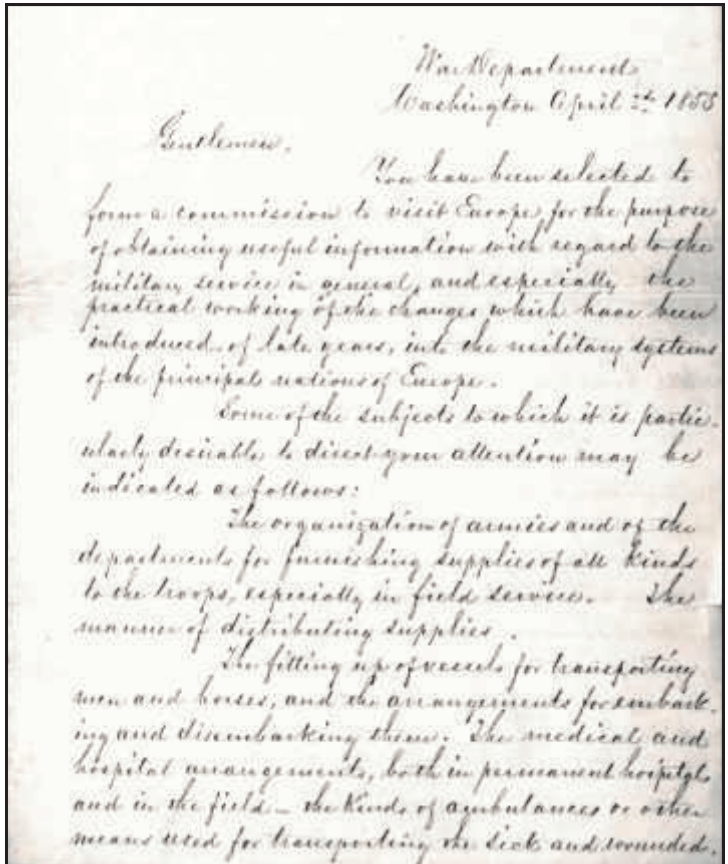 War Department
Washington April 2nd 1855
Gentlemen,
You have been selected to
form a commission to visit Europe, for the purpose
of obtaining useful information with regard to the
military service in general, and especially the
practical working of the changes which have been
introduced, of late years, into the military systems
of the principal nations of Europe.
Some of the subjects to which it is partic-
ularly desirable to direct your attention may be
indicated as follows:
The organization of armies and of the
departments for furnishing supplies of all kinds
to the troops, especially in field service. The
manner of distributing supplies.
The fitting up of vessels for transporting
men and horses, and the arrangements for embark-
ing and disembarking them. The medical and
hospital arrangements, both in permanent hospitals
and in the field – the kinds of ambulances or other
means used for transporting the sick and wounded.